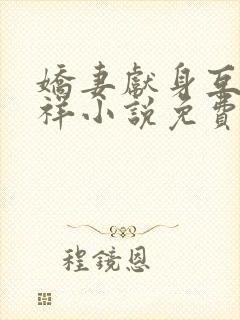 嬌妻獻身互
祥小說免費
程鏡恩